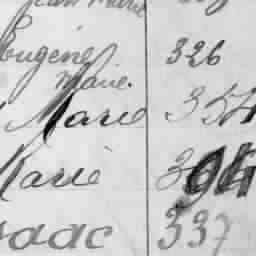 Jean Marie
Eugène 326
Marie
Marie 354
Marie 394
Isaac 337